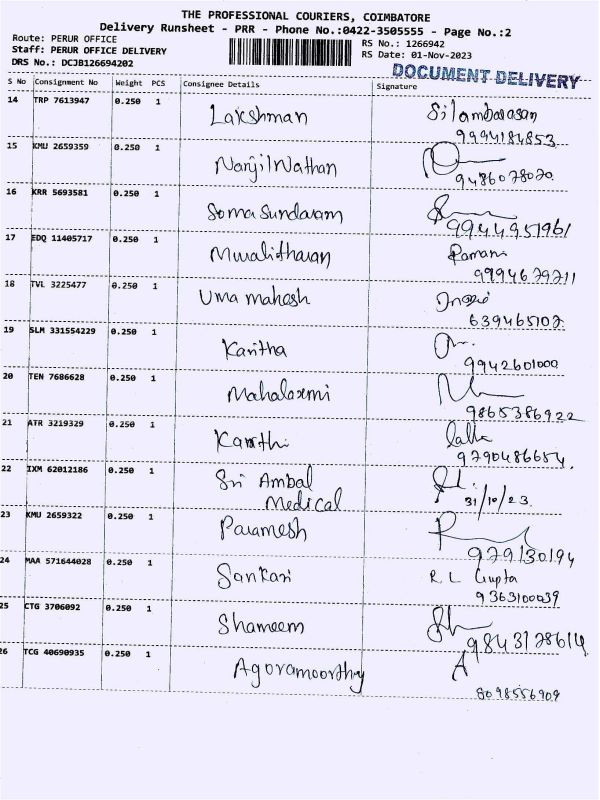 THE PROFESSIONAL COURIERS, COIMBATORE
Delivery Runsheet - PRR - Phone No.:0422-3505555 - Page No.:2
Route: PERUR OFFICE
RS No.: 1266942
Staff: PERUR OFFICE DELIVERY
RS Date: 01-Nov-2023
DRS No.: DCJB126694202
DOCUMENT DELIVERY
S No Consignment No Weight PCS Consignee Details Signature
14 TRP 7613947 0.250 1 Lakshman Silambarasan
9994184853
15 KMU 2659359 0.250 1 Nanjil Nathan
9486078020
16 KRR 5693581 0.250 1 Soma Sundaram
9944951961
17 EDQ 11405717 0.250 1 Muralitharan Ramani
9994679711
18 TVL 3225477 0.250 1 Uma mahesh
639465102
19 SLM 331554229 0.250 1 Karitha
9942601000
20 TEN 7686628 0.250 1 Mahalaxmi
9865386922
21 ATR 3219329 0.250 1 Karrthi Lalla
9790486654.
22 IXM 62012186 0.250 1 Sri Ambal
Medical 31/10/23
23 KMU 2659322 0.250 1 Paramesh
979130194
24 MAA 571644028 0.250 1 Sankari R L Gupta
9363100039
25 CTG 3706092 0.250 1 Shameem
9843128614
26 TCG 40690935 0.250 1 Agoramoorthy A
8098556909